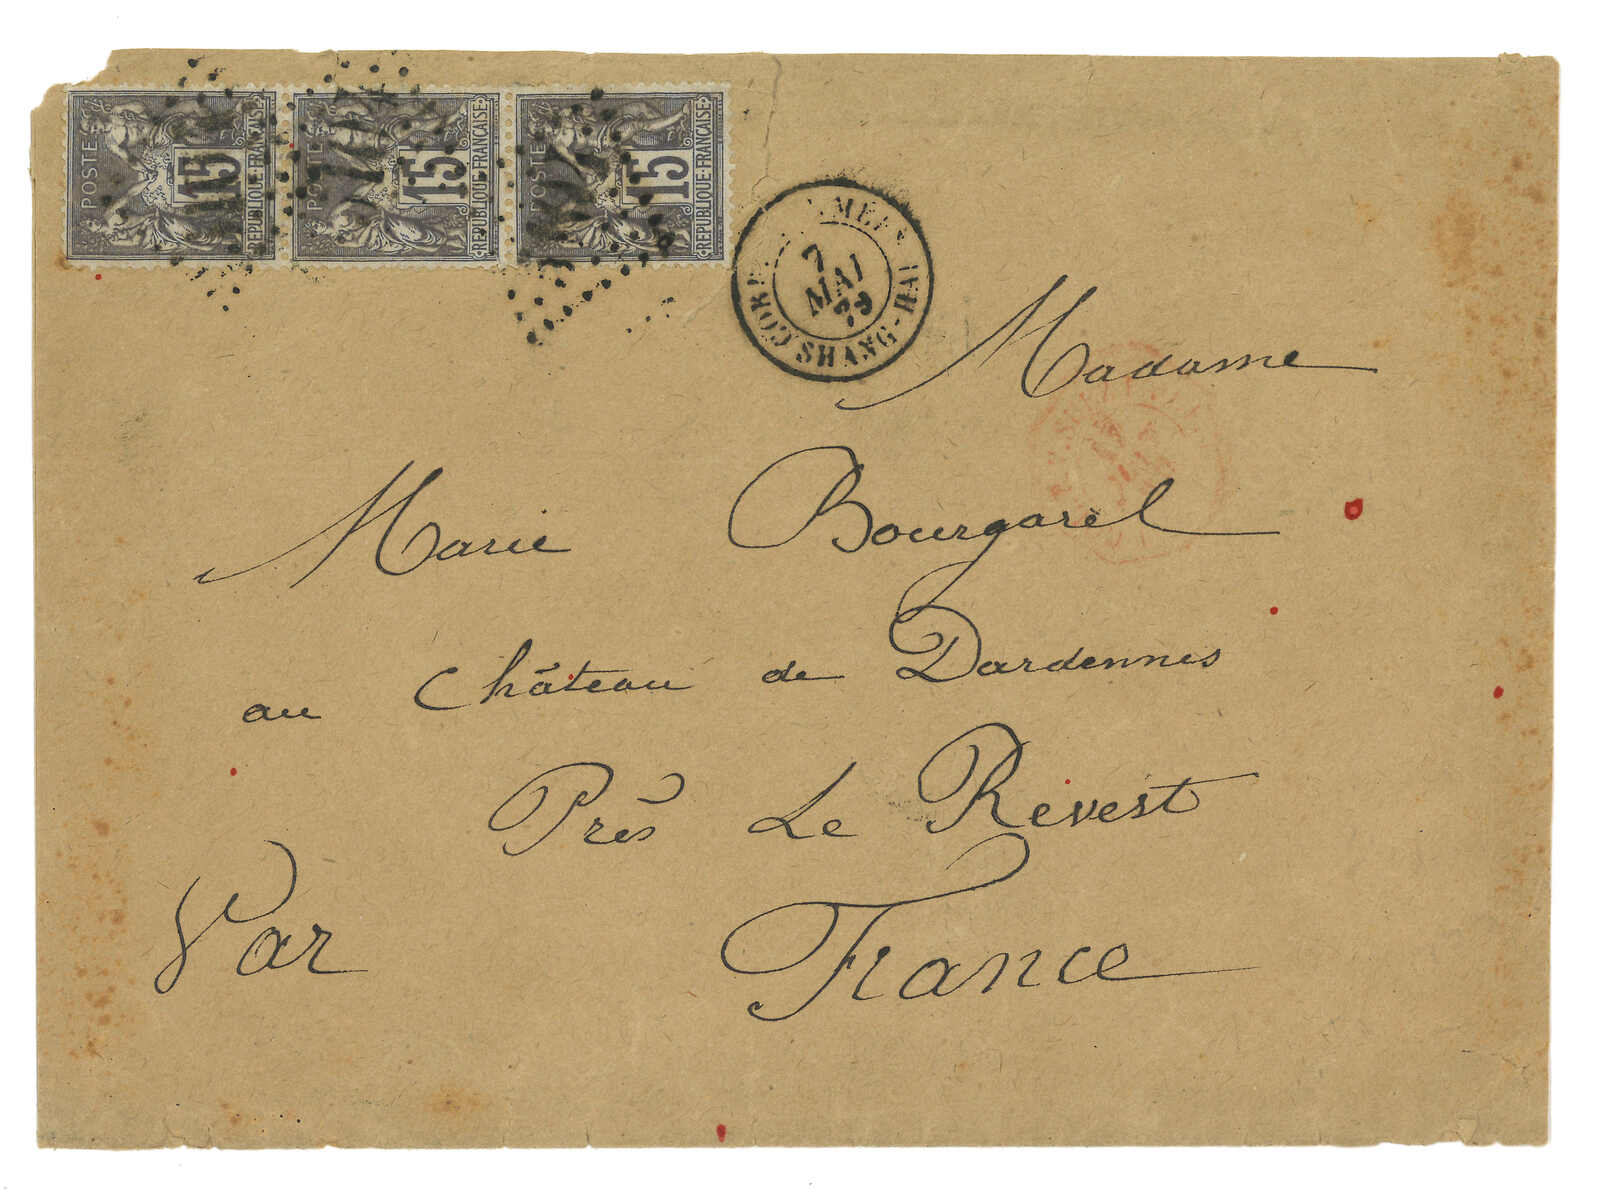 POSTE 15 REPUBLIQUE·FRANCAISE
POSTE 15 REPUBLIQUE·FRANCAISE
POSTE 15 REPUBLIQUE·FRANCAISE
7
MAI
79
SHANG-HAI
Madame
Marie Bourgarel
au Château de Dardennes
Près Le Revest
Var France